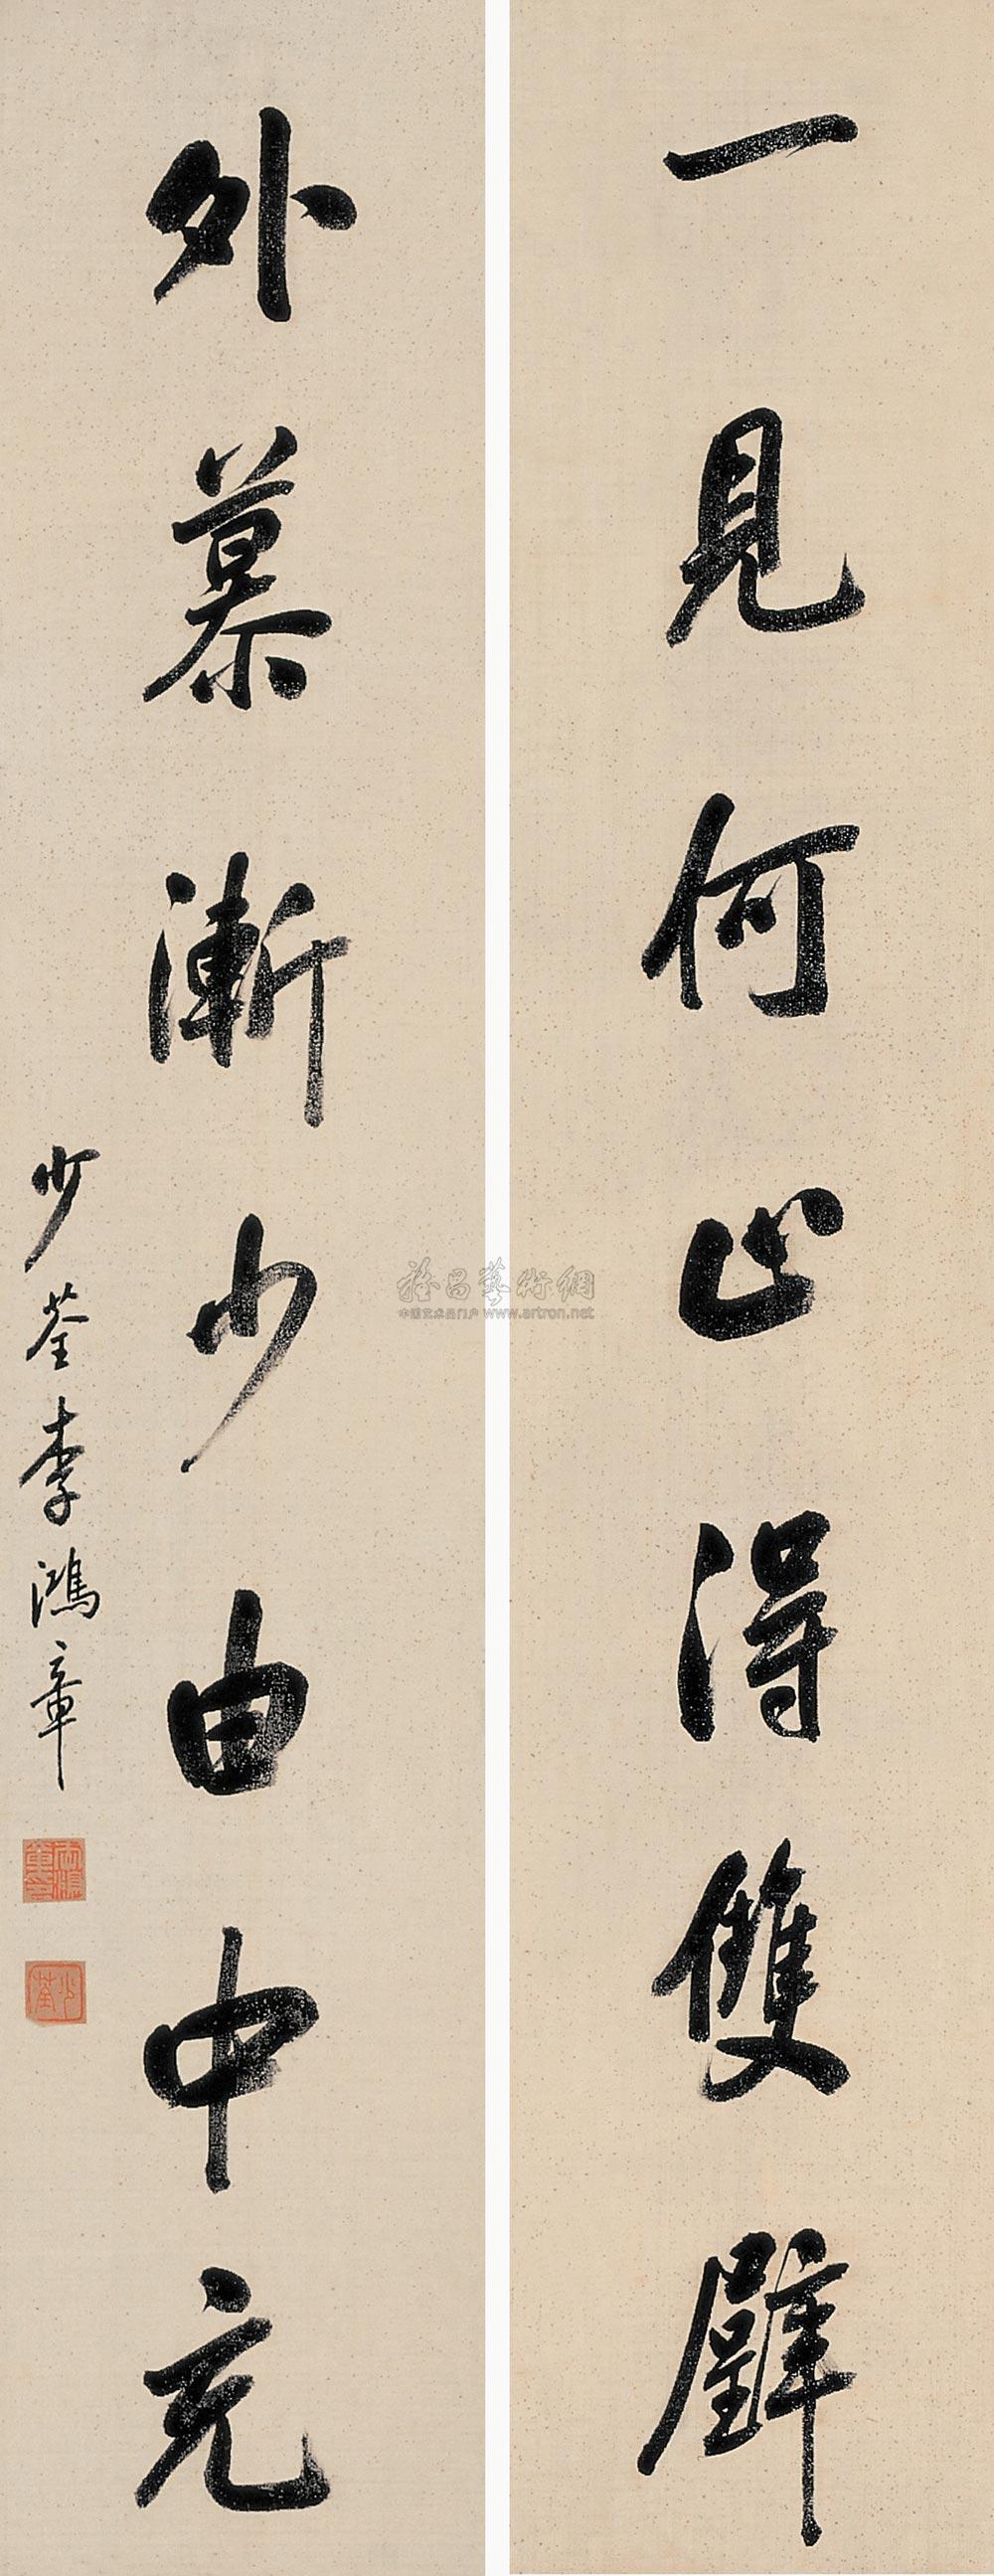 一見何止得雙璧
外慕漸少由中充
少荃李鴻章
少荃
雅昌藝術網
中国艺术品门户 www.artron.net